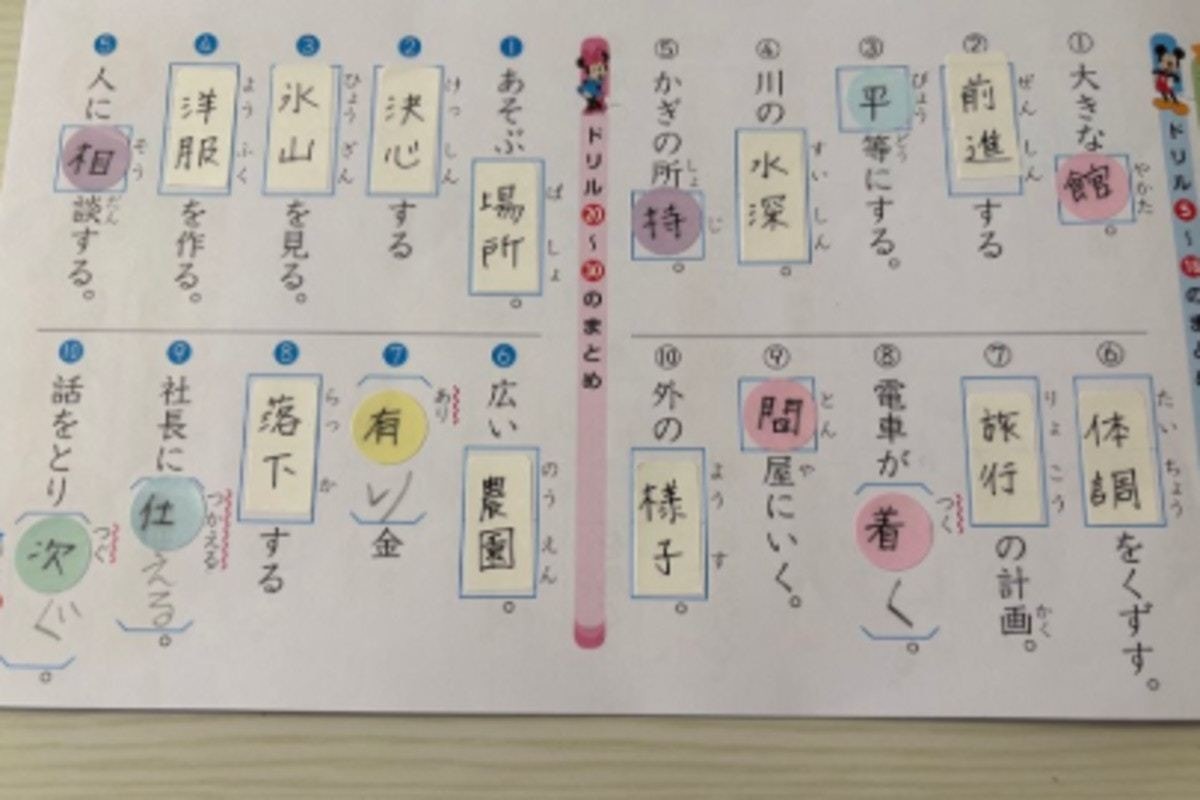 ドリル
やかた
①大きな館。
ぜんしん
②前進する
びょうどう
③平等にする。
すいしん
④川の水深。
しょじ
⑤かぎの所持。
たいちょう
⑥体調をくずす。
りょこう かく
⑦旅行の計画。
つく
⑧電車が着く。
とんや
⑨問屋にいく。
ようす
⑩外の様子。
ドリル20〜30のまとめ
ばしょ
❶あそぶ場所。
けっしん
❷決心する
ひょうざん
❸氷山を見る。
ようふく
❹洋服を作る。
そうだん
❺人に相談する。
のうえん
❻広い農園。
あり
❼有り金
らっか
❽落下する
つかえる
❾社長に仕える。
つぐ
❿話をとり次ぐ。